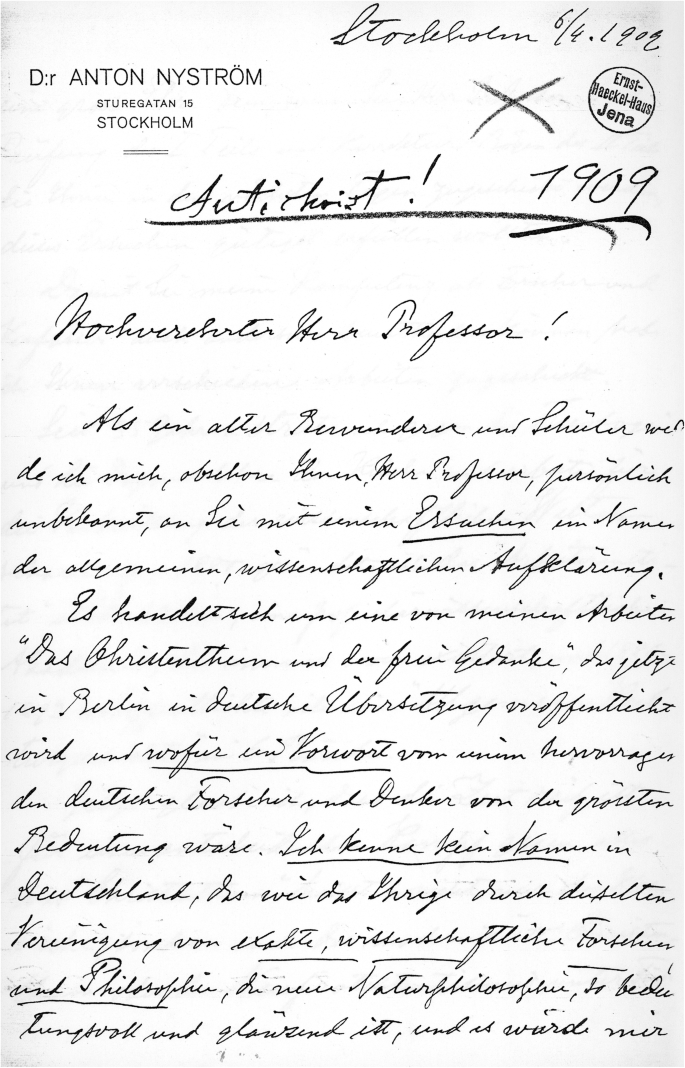 Stockholm 6/4. 1909
D:r ANTON NYSTRÖM
STUREGATAN 15
STOCKHOLM
Ernst-
Haeckel-Haus
Jena
Antichrist! 1909
Hochverehrter Herr Professor!
Als ein alter Bewunderer und Schüler wen
de ich mich, obschon Ihnen, Herr Professor, persönlich
unbekannt, an Sie mit einem Ersuchen im Namen
der allgemeinen, wissenschaftlichen Aufklärung.
Es handelt sich um eine von meinen Arbeiten
"Das Christenthum und der freie Gedanke", das jetzt
in Berlin in deutsche Übersetzung veröffentlicht
wird und wofür ein Vorwort vom einem hervorragen
den deutschen Forscher und Denker von der grössten
Bedeutung wäre. Ich kenne kein Namen in
Deutschland, das wie das Ihrige durch dieselten
Vereinigung von exakte, wissenschaftliche Forschen
und Philosophie, die neue Naturphilosophie, so bedeu
tungsvoll und glänzend ist, und es würde mir